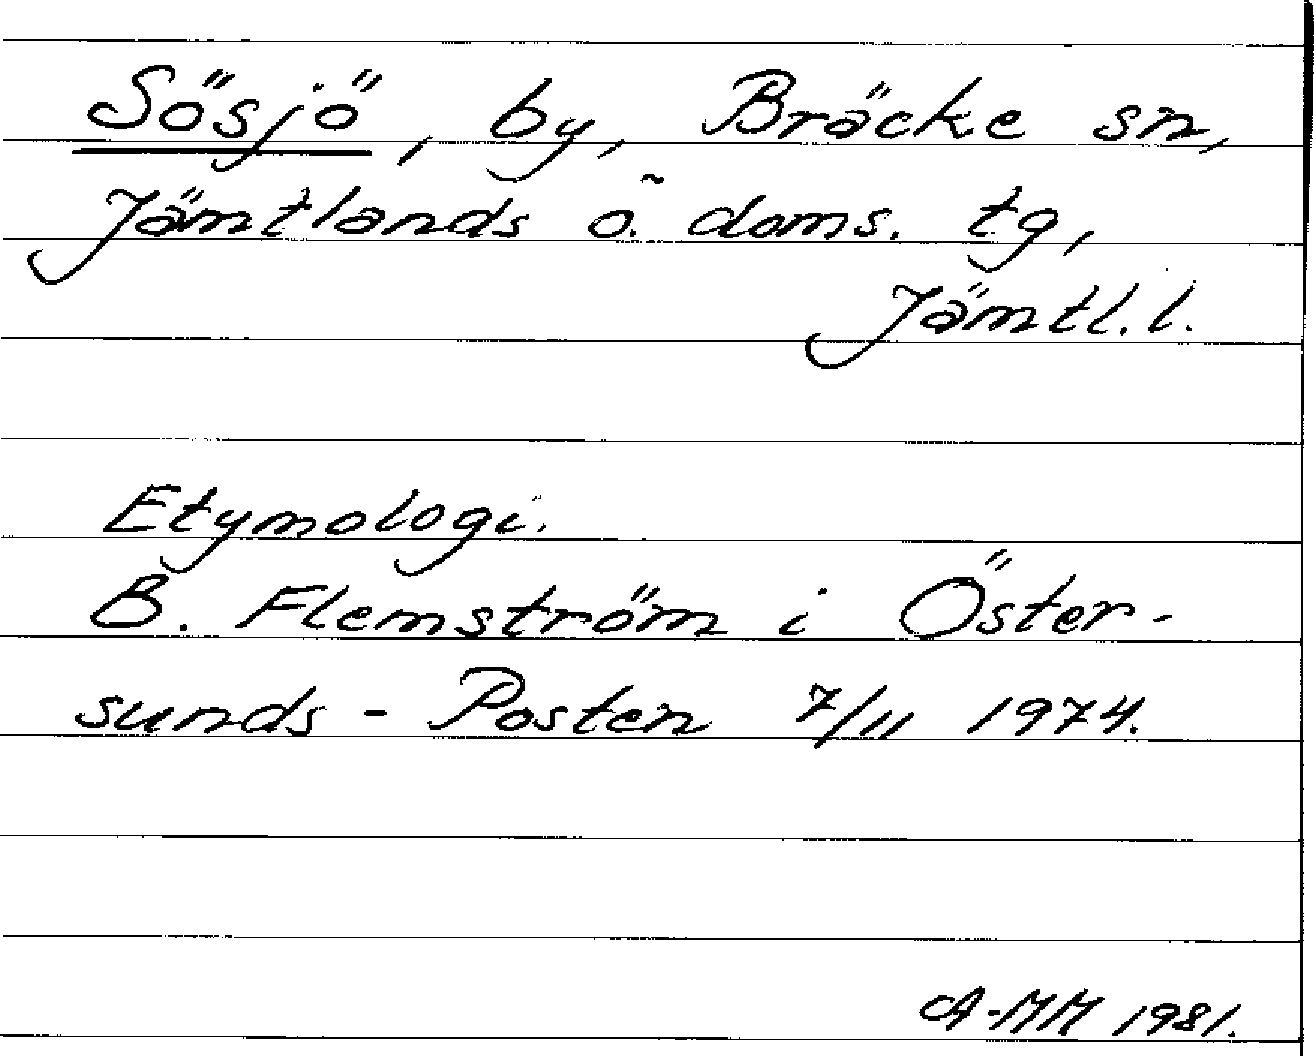 Sösjö, by, Bräcke sn,
Jämtlands ö. doms. tg,
Jämtl. l.
Etymologi.
B. Flemström i Öster-
sunds-Posten 7/11 1974.
A-MM 1981.